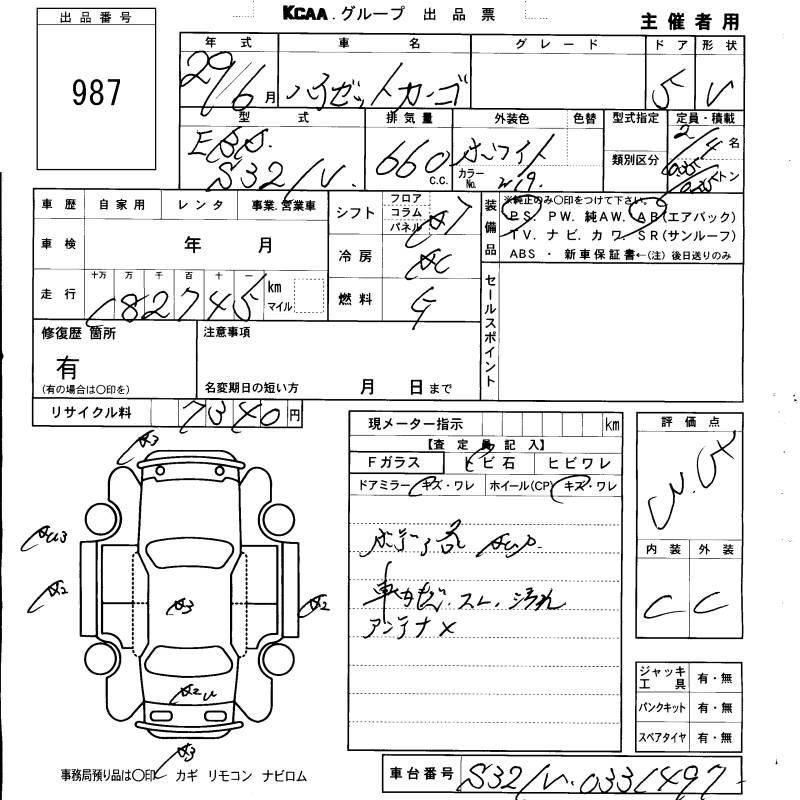 KCAA.グループ 出品票
主催者用
出品番号
987
年式 車名 グレード ドア 形状
29/6月 ハイゼットカーゴ 5 V
型式 排気量 外装色 色替 型式指定 定員・積載
EBD. 660 C.C. ホワイト 2/4名
S321V. カラーNo. W19. 類別区分 トン
車歴 自家用 レンタ 事業.営業車
シフト フロア コラム パネル AT
装備品 ※純正のみ○印をつけて下さい。
PS. PW. 純AW. AB(エアバック)
TV. ナビ. カワ. SR(サンルーフ)
ABS ・ 新車保証書←(注) 後日送りのみ
車検 年 月
冷房 AC
走行 十万 万 千 百 十 一
182745 km マイル
燃料 G
セールスポイント
修復歴 箇所 注意事項
有
(有の場合は○印を) 名変期日の短い方 月 日まで
リサイクル料 7340円
現メーター指示 km
【査定員記入】
Fガラス トビ石 ヒビワレ
ドアミラー キズ・ワレ ホイール(CP) キズ・ワレ
ボディ各 AUP.
車内 スレ. 汚れ
アンテナ×
評価点
内装 外装
C C
A3
AU3
A2
A2
A3
A2 U
A3
ジャッキ工具 有・無
パンクキット 有・無
スペアタイヤ 有・無
事務局預り品は○印 カギ リモコン ナビロム
車台番号 S321V-0331497